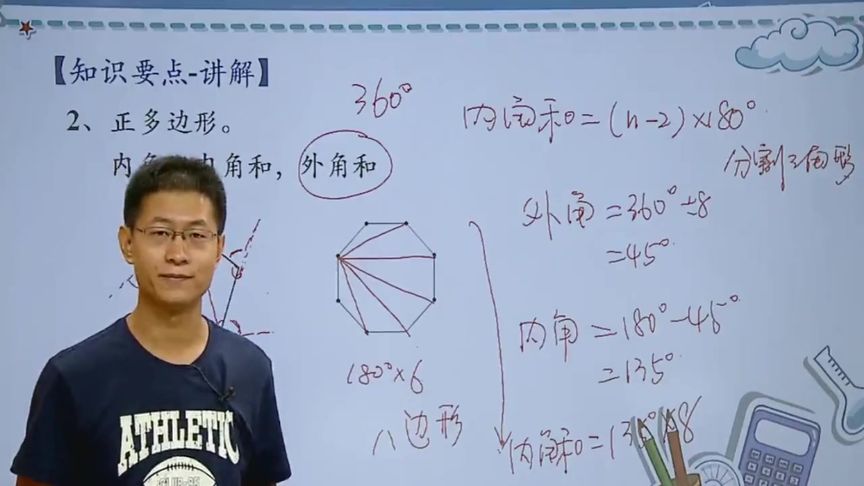 【知识要点-讲解】
2、正多边形。
内角 内角和，外角和
360°
内角和=(n-2)×180°
分割三角形
外角=360°÷8
=45°
内角=180°-45°
=135°
内角和=135°×8
180°×6
八边形
ATHLETIC